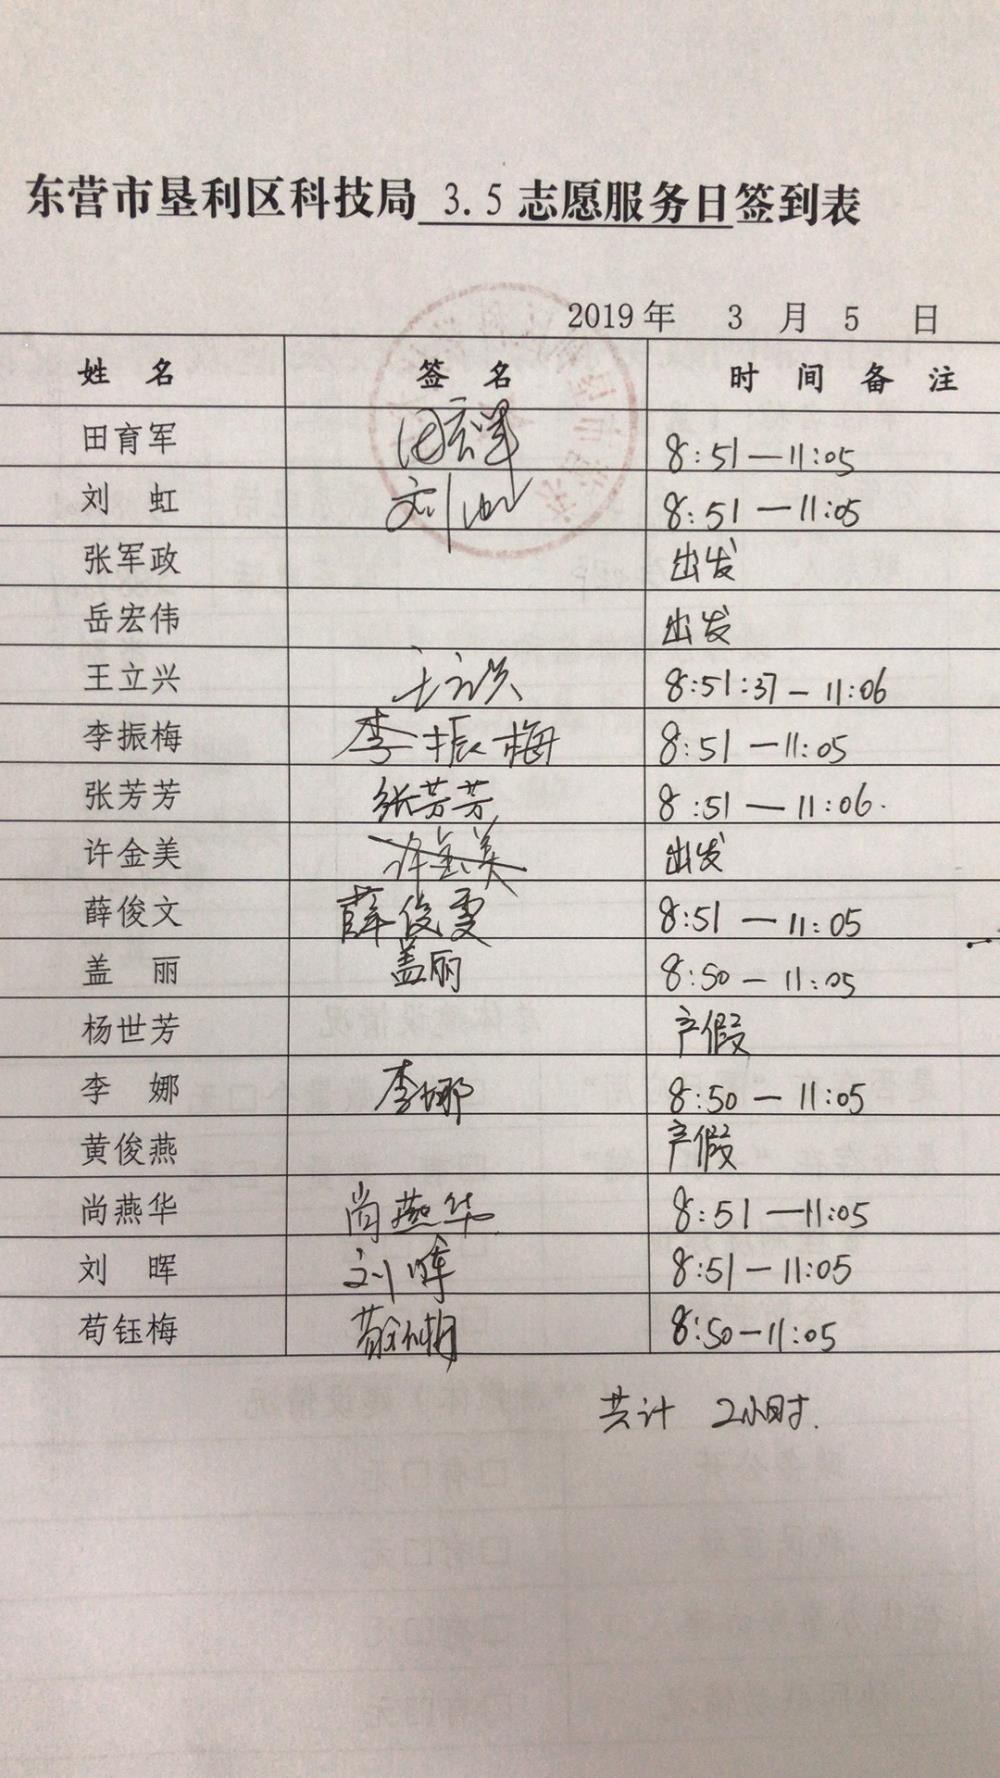 东营市垦利区科技局 3.5 志愿服务日签到表
2019 年 3 月 5 日
姓 名 签 名 时 间 备 注
田育军 田育军 8:51—11:05
刘 虹 刘虹 8:51—11:05
张军政 出发
岳宏伟 出发
王立兴 王立兴 8:51:37—11:06
李振梅 李振梅 8:51—11:05
张芳芳 张芳芳 8:51—11:06.
许金美 许金美 出发
薛俊文 薛俊雯 8:51—11:05
盖 丽 盖丽 8:50—11:05
杨世芳 产假
李 娜 李娜 8:50—11:05
黄俊燕 产假
尚燕华 尚燕华 8:51—11:05
刘 晖 刘晖 8:51—11:05
荀钰梅 8:50—11:05
共计 2小时.